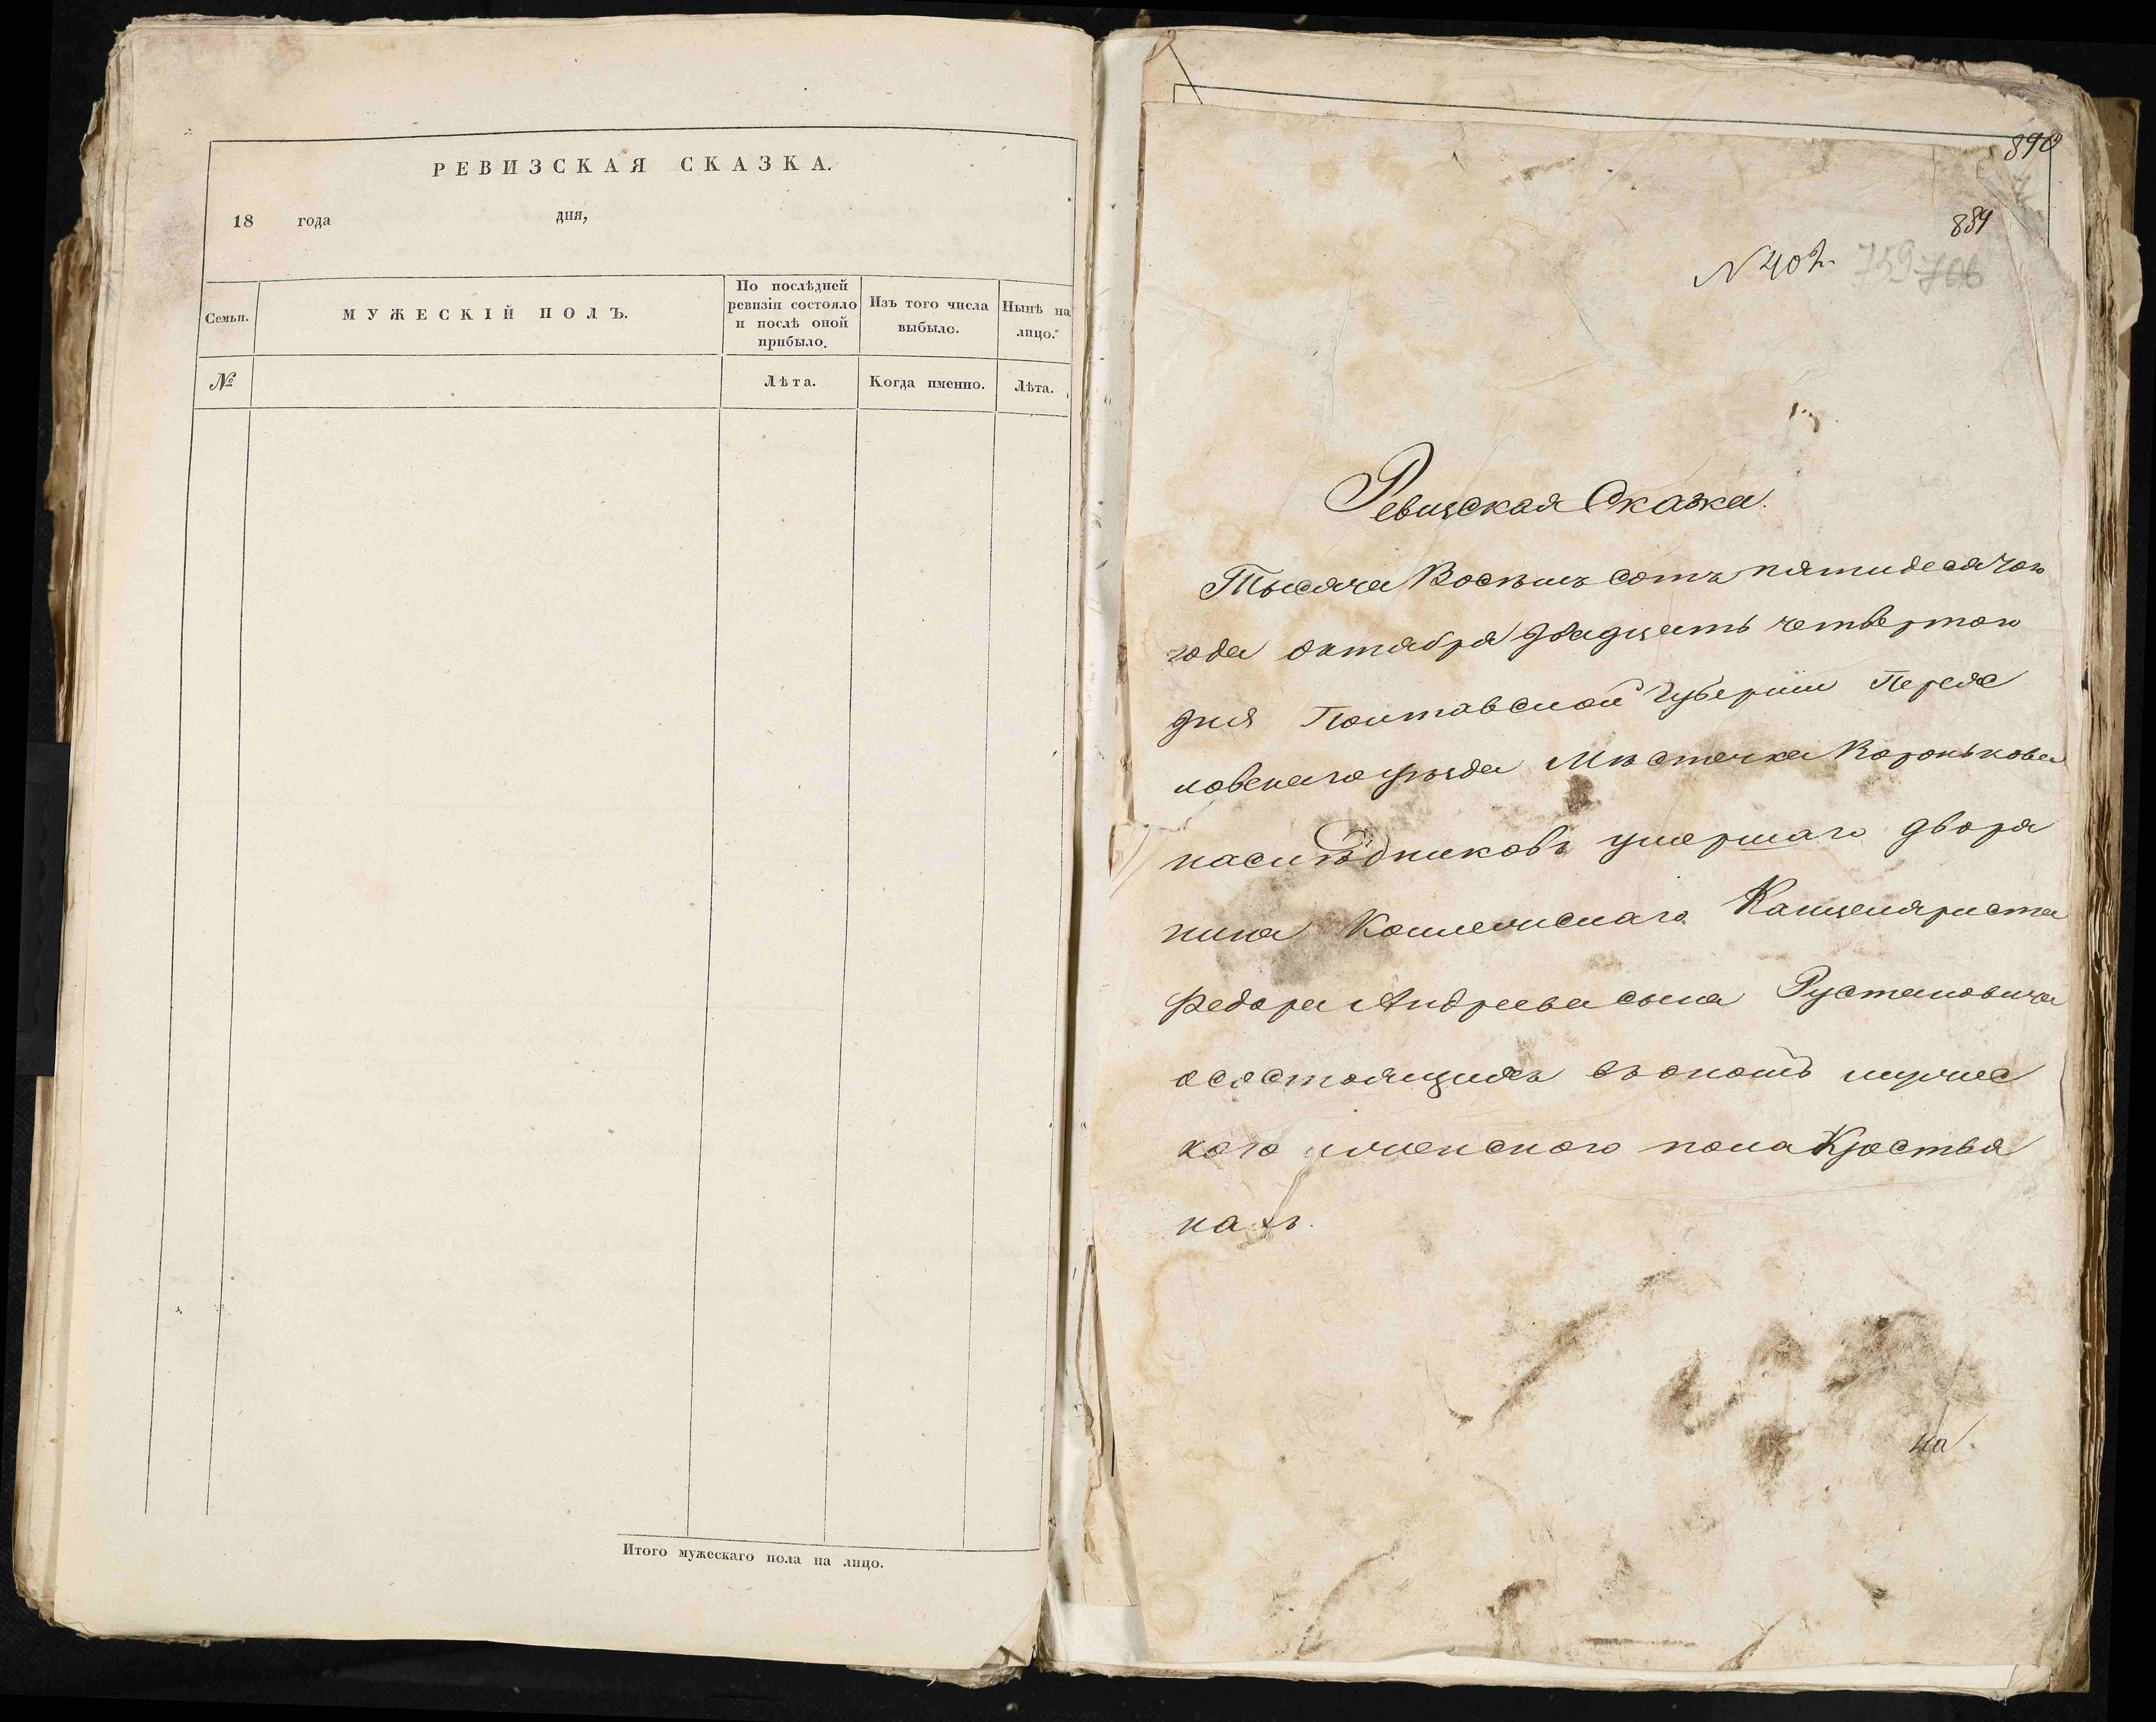 РЕВИЗСКАЯ СКАЗКА.
18 года дня,
Семьи. МУЖЕСКІЙ ПОЛЪ. По послѣдней ревизіи состояло и послѣ оной прибыло. Изъ того числа выбыло. Нынѣ на лицо.
№ Лѣта. Когда именно. Лѣта.
Итого мужескаго пола на лицо.
890
889
N 402. 759 706
Ревизская Сказка.
Тысяча Восемь сотъ пятидесятого
года октября двадцать четвертого
дня Полтавской Губерніи Переяс
ловскаго уѣзда Мѣстечка Воронькова
наслѣдниковъ умершаго дворя
нина Коллежскаго Канцеляриста
Федора Андреева сына Рустановича
о состоящихъ въ ономъ мужес
кого и женского пола Крестья
нахъ.